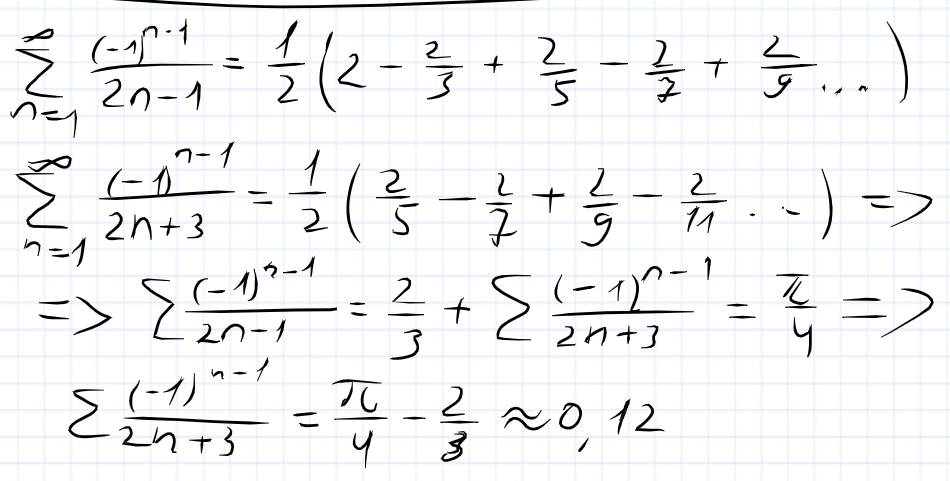 ∞∑n=1 (-1)^(n-1)/(2n-1) = 1/2 (2 - 2/3 + 2/5 - 2/7 + 2/9 ...)
∞∑n=1 (-1)^(n-1)/(2n+3) = 1/2 (2/5 - 2/7 + 2/9 - 2/11 ...) =>
=> ∑ (-1)^(n-1)/(2n-1) = 2/3 + ∑ (-1)^(n-1)/(2n+3) = π/4 =>
∑ (-1)^(n-1)/(2n+3) = π/4 - 2/3 ≈ 0,12